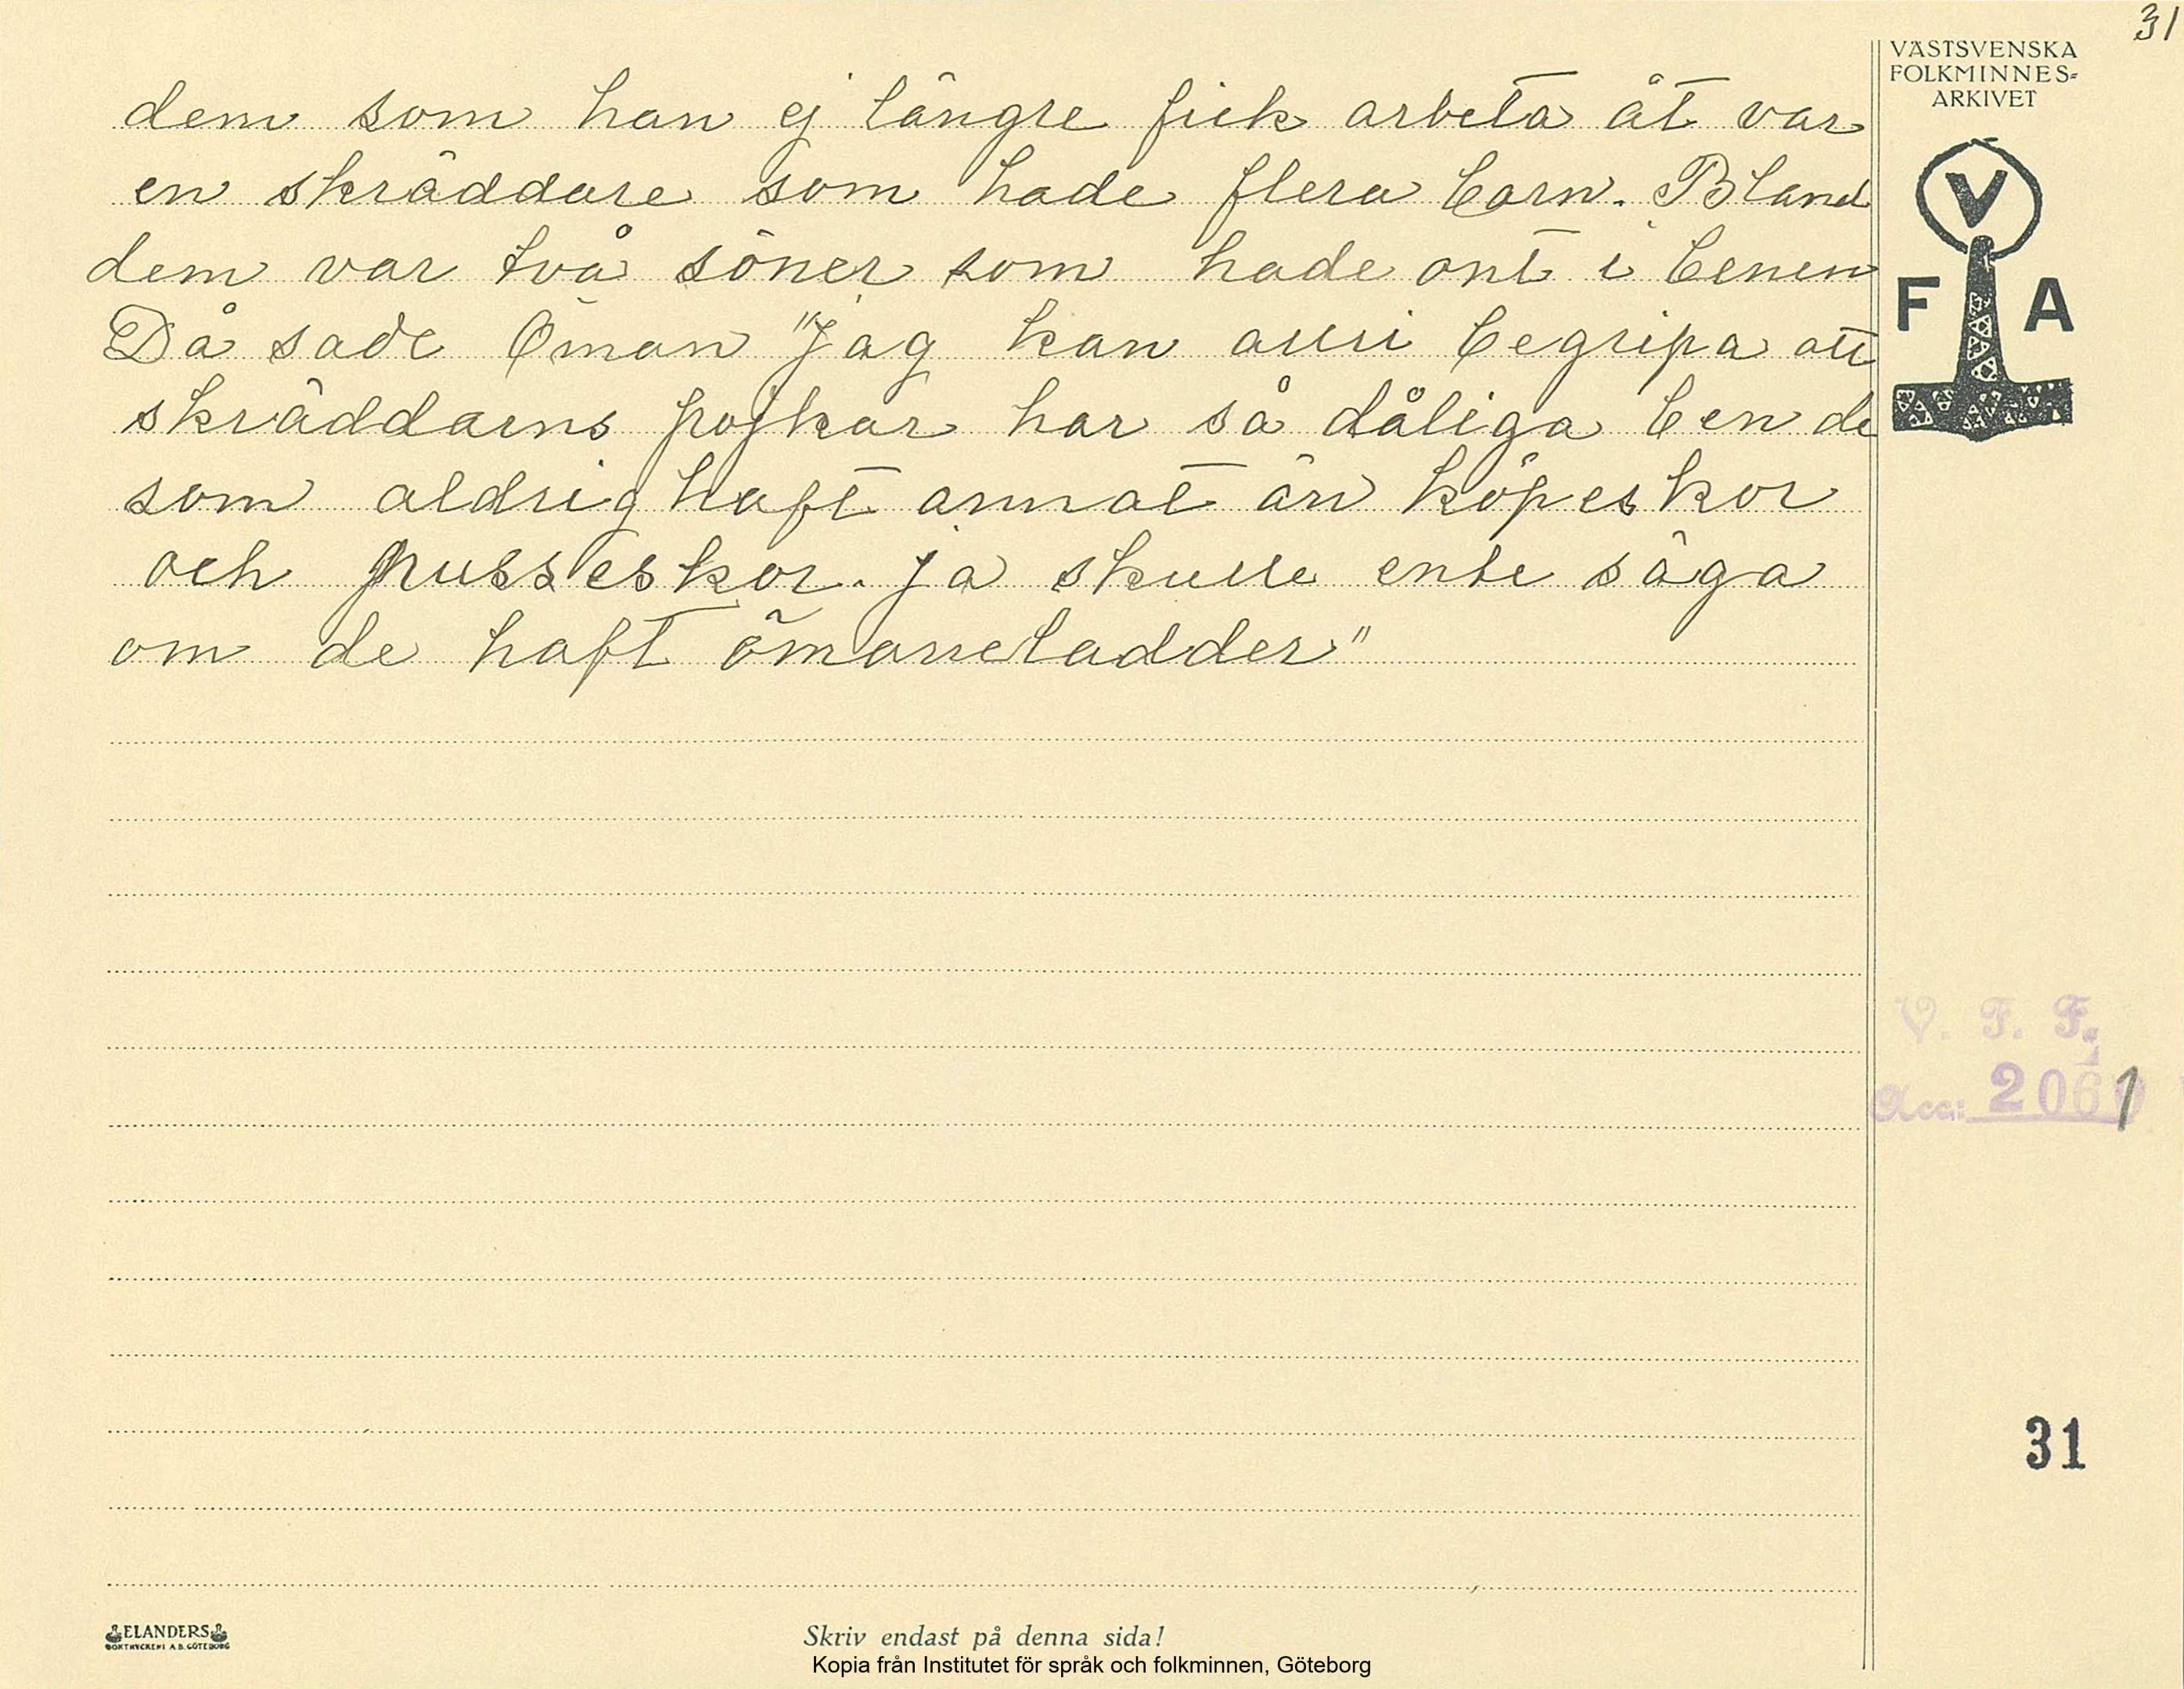 31
VÄSTSVENSKA
FOLKMINNES-
ARKIVET
V
F A
dem som han ej längre fick arbeta åt var
en skräddare som hade flera barn. Bland
dem var två söner som hade ont i benen
Då sade Öman "Jag kan alri begripa att
skräddarns pojkar har så dåliga ben de
som aldrig haft annat än köpeskor
och pussleskor. ja skulle ente säga
om de haft ömaneladder"
V. F. F.
Acc: 2061
31
ELANDERS
BOKTRYCKERI A.B. GÖTEBORG
Skriv endast på denna sida!
Kopia från Institutet för språk och folkminnen, Göteborg